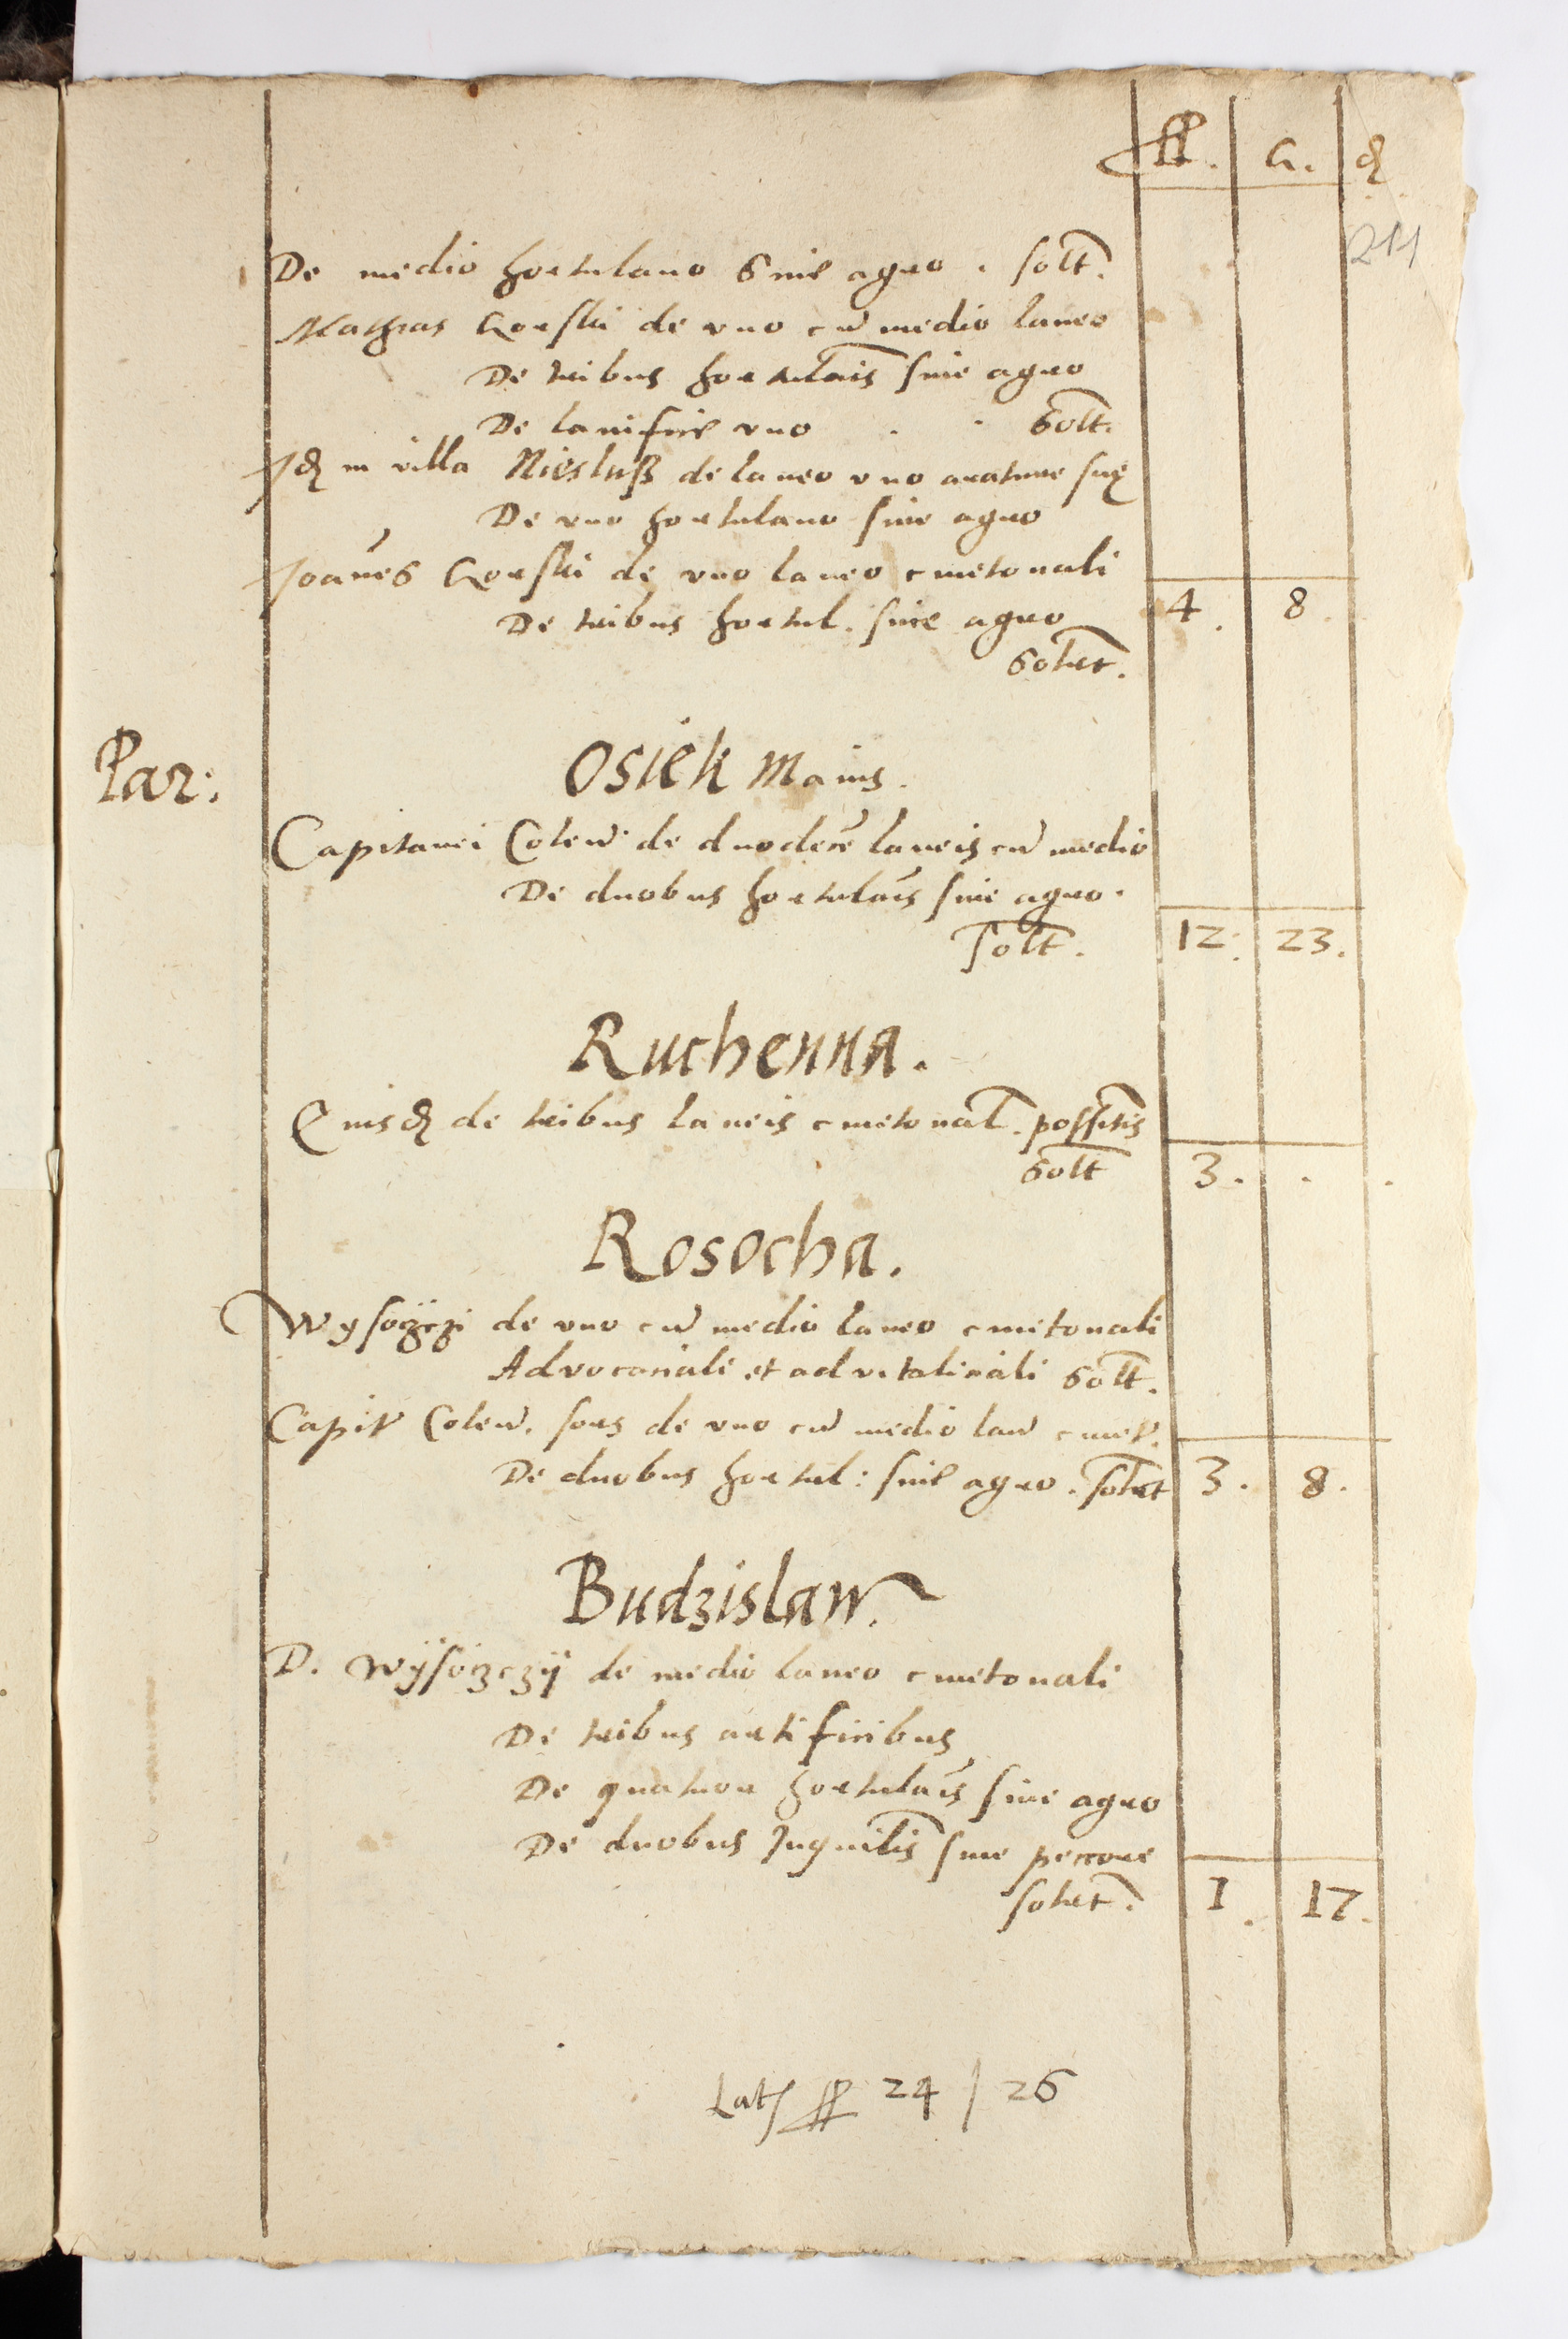 ff. G. ₰
211
De medio hortulano sine agro . solt.
Mathias Gorski de uno cū medio laneo
De tribus hortulais sine agro
De lanifice uno . . Solt.
Id in villa Niesluß de laneo uno arature sue
De uno hortulano sine agro
Joanes Gorski de uno laneo cmetonali
De tribus hortul. sine agro 4. 8.
Solvet.
Par: Osiek Maius.
Capitanei Colen. de duodecē laneis cū medio
De duobus hortulais sine agro.
Solt. 12. 23.
Ruchenna.
Eiusd de tribus laneis cmetonal. possitis
Solt 3. . .
Rosocha.
Wysoczczi de uno cū medio laneo cmetonali
Advocaciali et advitaliciali Solt.
Capit Colen. sors de uno cū medio lan cmet.
De duobus hortul: sine agro. Solvet 3. 8.
Budzislaw.
D. Wÿsoczczÿ de medio laneo cmetonali
De tribus artificibus
De quatuor hortulais sine agro
De duobus Inquilis sine pecore
solvet. 1. 17.
Lat ff 24 / 26